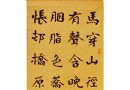 馬穿山徑
有聲含晚
胭脂色蕎
悵邨橋原